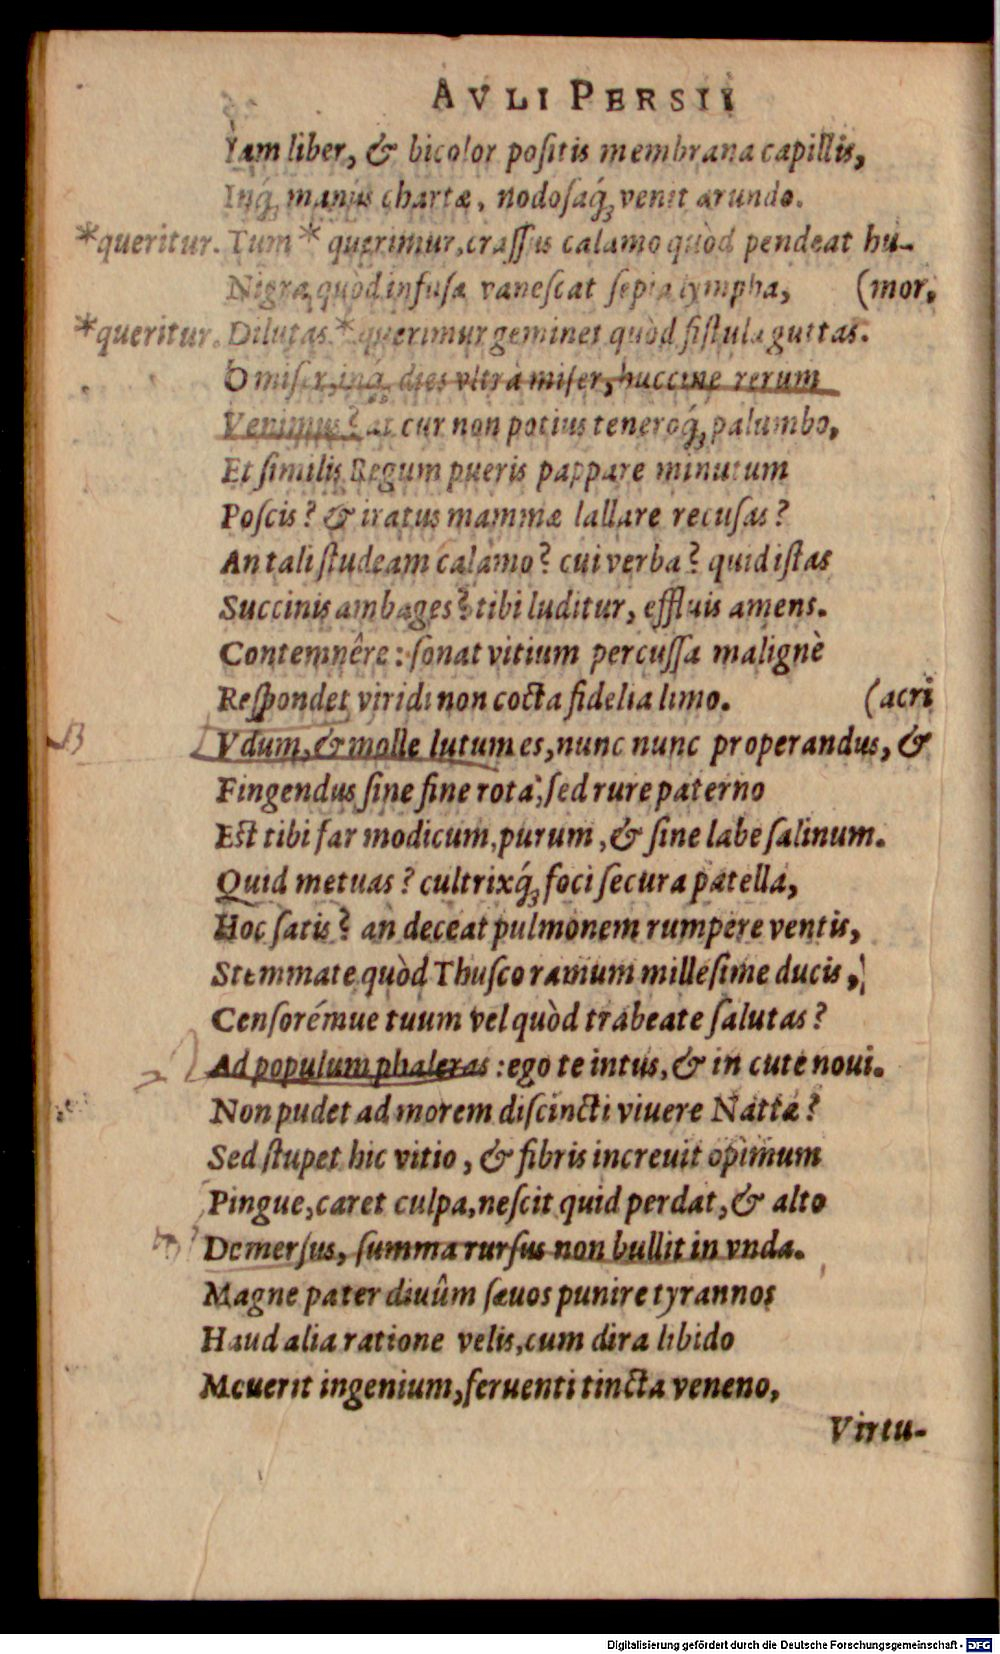 AVLI PERSII
Iam liber, & bicolor positis membrana capillis,
Inq́; manus chartæ, nodosaq́; venit arundo.
*queritur. Tum * querimur, crassus calamo quòd pendeat hu-
Nigra quòd infusa vanescat sepia lympha, (mor,
*queritur. Dilutas * querimur geminet quòd fistula guttas.
O miser, inq́; dies vltra miser, huccine rerum
Venimus? at cur non potius teneroq́; palumbo,
Et similis Regum pueris pappare minutum
Poscis? & iratus mammæ lallare recusas?
An tali studeam calamo? cui verba? quid istas
Succinis ambages? tibi luditur, effluis amens.
Contemnêre: sonat vitium percussa malignè
Respondet viridi non cocta fidelia limo. (acri
Vdum, & molle lutum es, nunc nunc properandus, &
Fingendus sine fine rota, sed rure paterno
Est tibi far modicum, purum, & sine labe salinum.
Quid metuas? cultrixq́; foci secura patella,
Hoc satis? an deceat pulmonem rumpere ventis,
Stemmate quòd Thusco ramum millesime ducis,
Censorémue tuum vel quòd trabeate salutas?
Ad populum phaleras: ego te intus, & in cute noui.
Non pudet ad morem discincti viuere Nattæ?
Sed stupet hic vitio, & fibris increuit opimum
Pingue, caret culpa, nescit quid perdat, & alto
Demersus, summa rursus non bullit in vnda.
Magne pater diuûm sæuos punire tyrannos
Haud alia ratione velis, cum dira libido
Mouerit ingenium, feruenti tincta veneno,
Virtu-
Digitalisierung gefördert durch die Deutsche Forschungsgemeinschaft - DFG